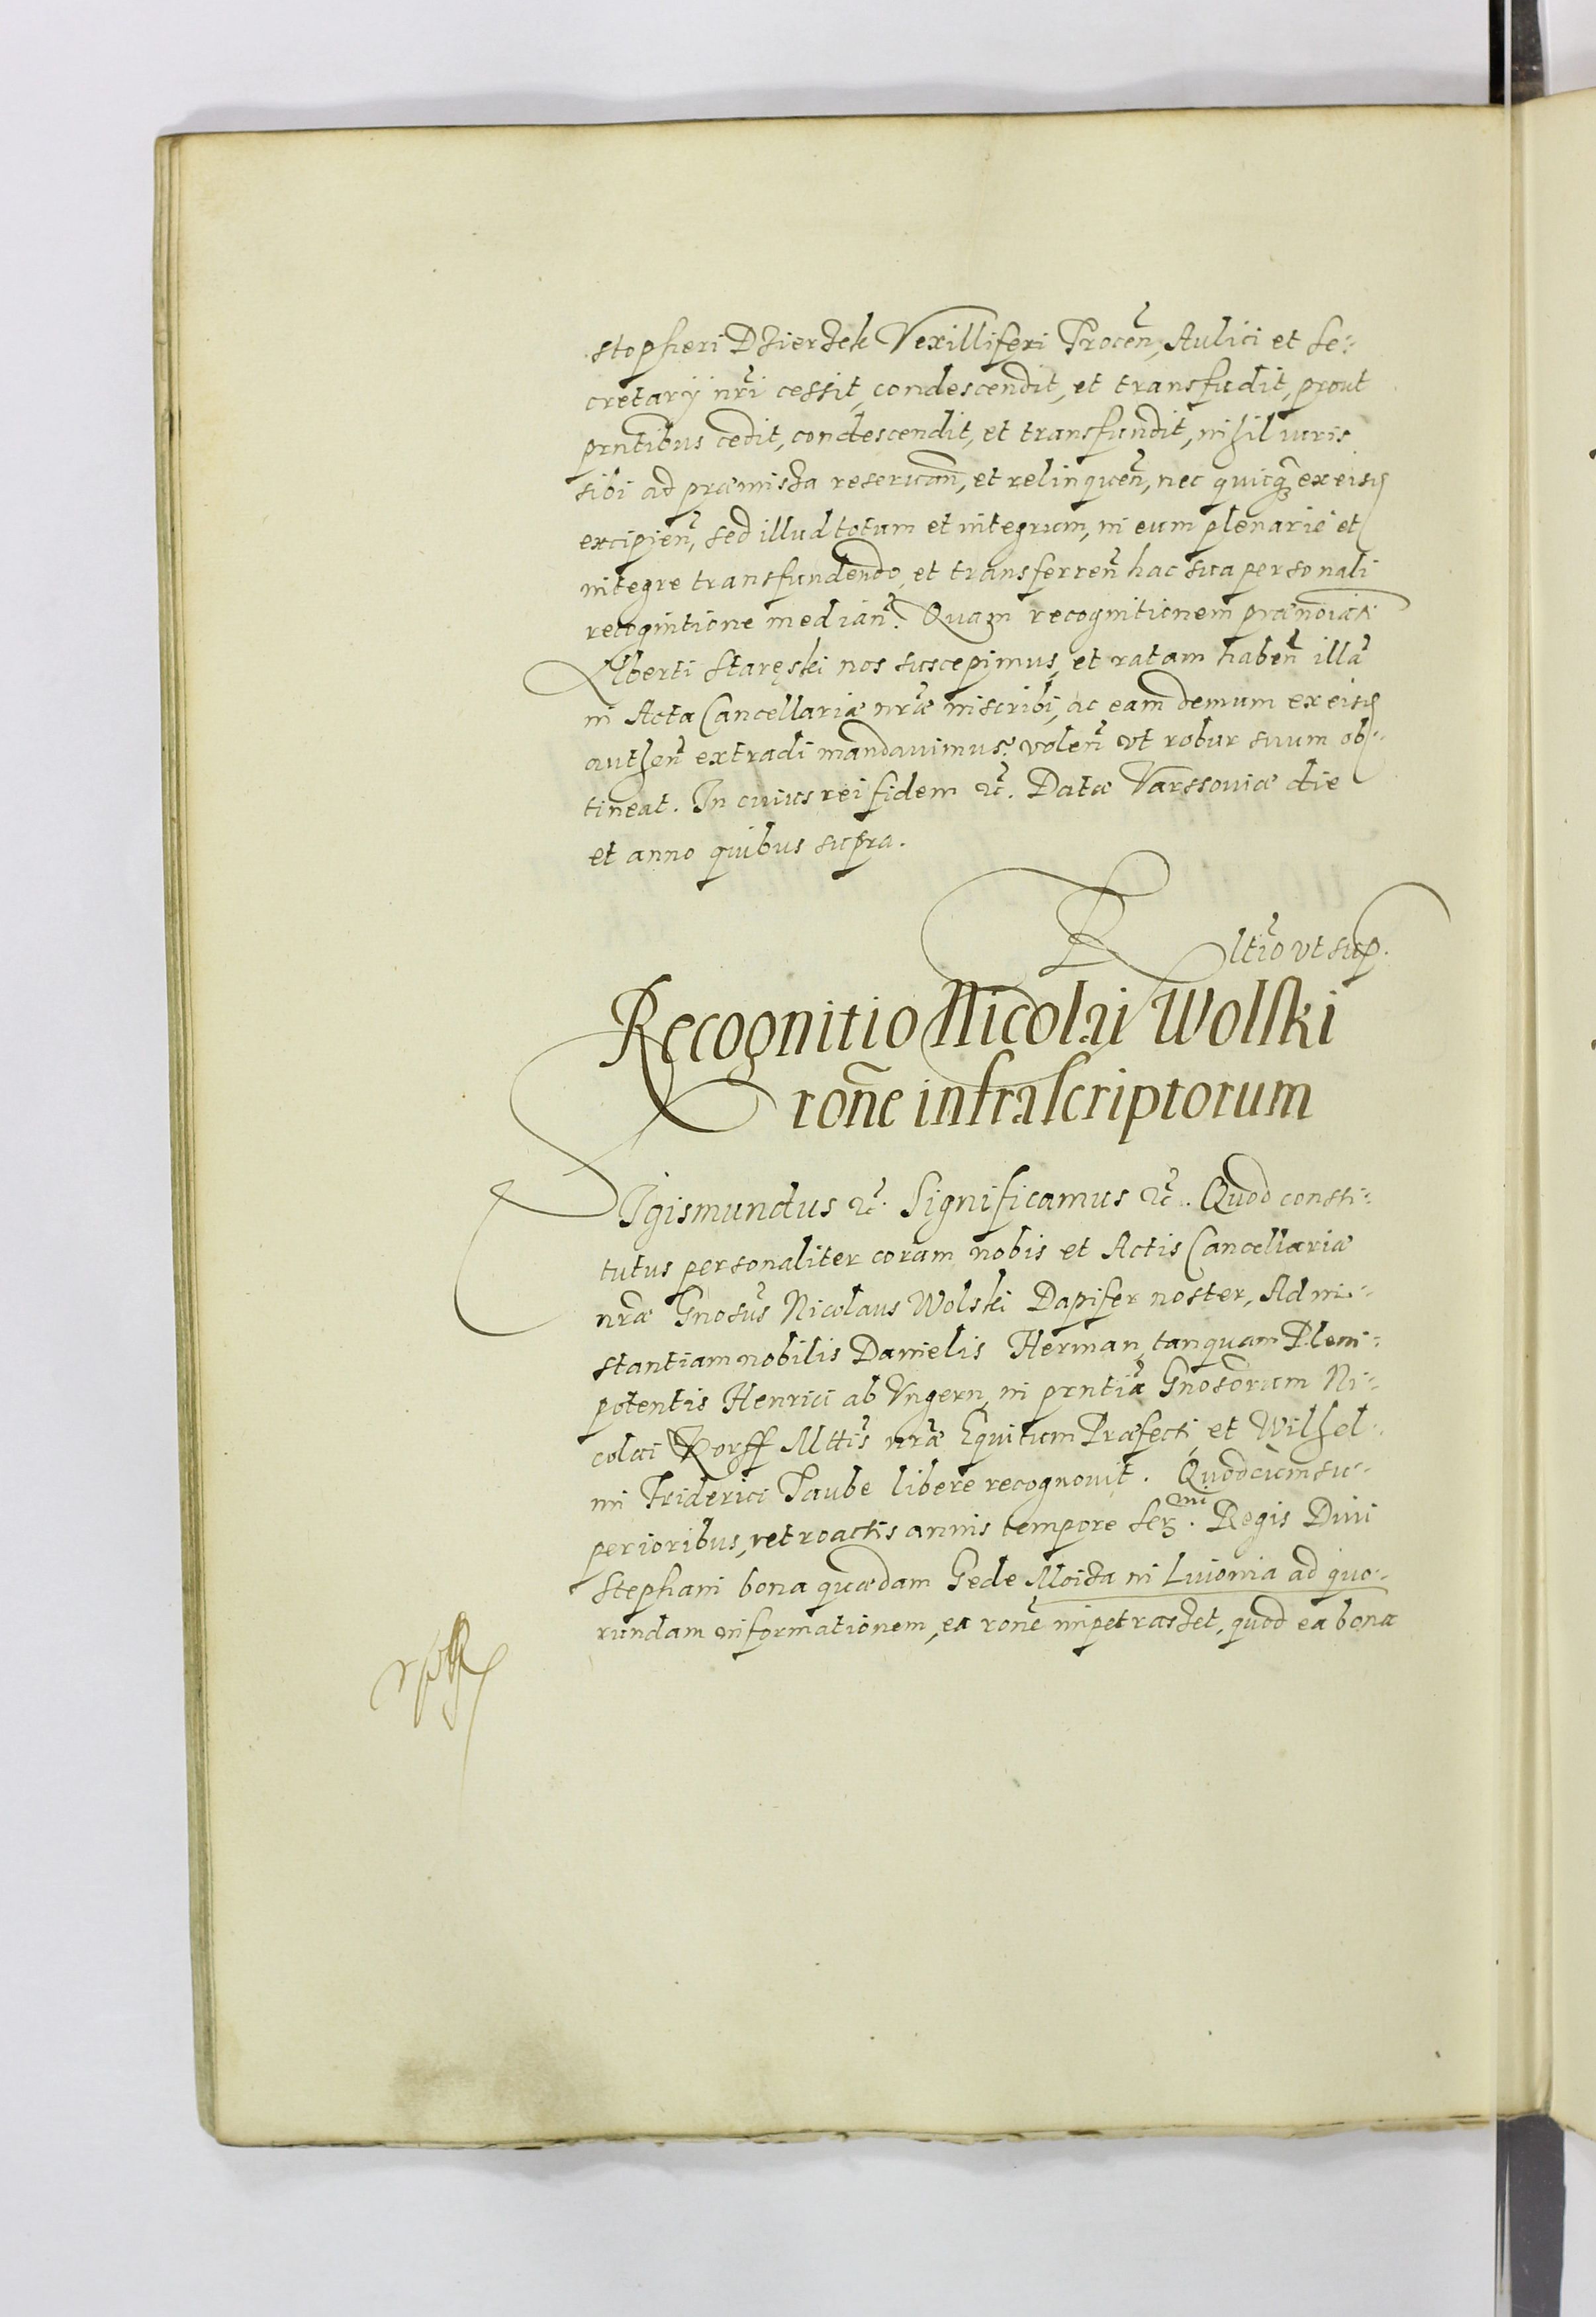 stopheri Dzierzek Vexilliferi Trocen̄, Aulici et Se⸗
cretarÿ nr̄i cessit, condescendit, et transfudit, prout
prntibus cedit, condescendit, et transfundit, nihil iuris
sibi ad præmissa reseruan̄, et relinquen̄, nec quicq̄ȝ ex eisd
excipien̄, sed illud totum et integrum, in eum plenarie et
integre transfundendo, et transferren̄ hac sua personali
recognitione median̄. Quam recognitionem prænoīati
Alberti Staręski nos suscepimus, et ratam haben̄ illā
in Acta Cancellariæ nr̄æ inscribi, ac eam demum ex eisd
authen̄ extradi mandauimus, volen̄ vt robur suum ob⸗
tineat. In cuius rei fidem ⁊c̄. Datæ Varssouiæ die
et anno quibus supra.
R ltīo vt sup.
Recognitio Nicolai Wolski
ron̄e infrascriptorum
Sigismundus ⁊c̄. Significamus ⁊c̄. Quod consti⸗
tutus personaliter coram nobis et Actis Cancellariæ
nr̄æ Gnosūs Nicolaus Wolski Dapifer noster, Ad in⸗
stantiam nobilis Danielis Herman, tanquam Pleni⸗
potentis Henrici ab Vngern, in prntiā Gnosōrum Ni⸗
colai Korff Mttīs nr̄æ Equitum Præfecti, et Wilhel⸗
mi Friderici Taube libere recognouit. Quod cum su⸗
perioribus, retroactis annis tempore Serᵐⁱ. Regis Diui
Stephani bona quædam Gede Moiza in Liuonia ad quo⸗
rundam informationem, ea ron̄e impetrasset, quod ea bona